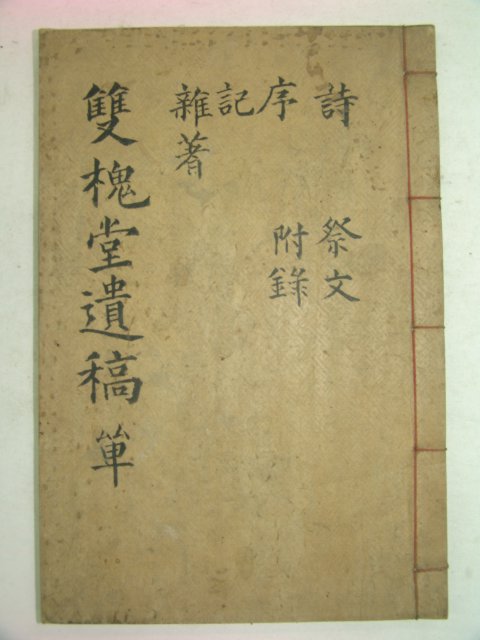 詩
序
記
雜著
祭文
附錄
雙槐堂遺稿 單